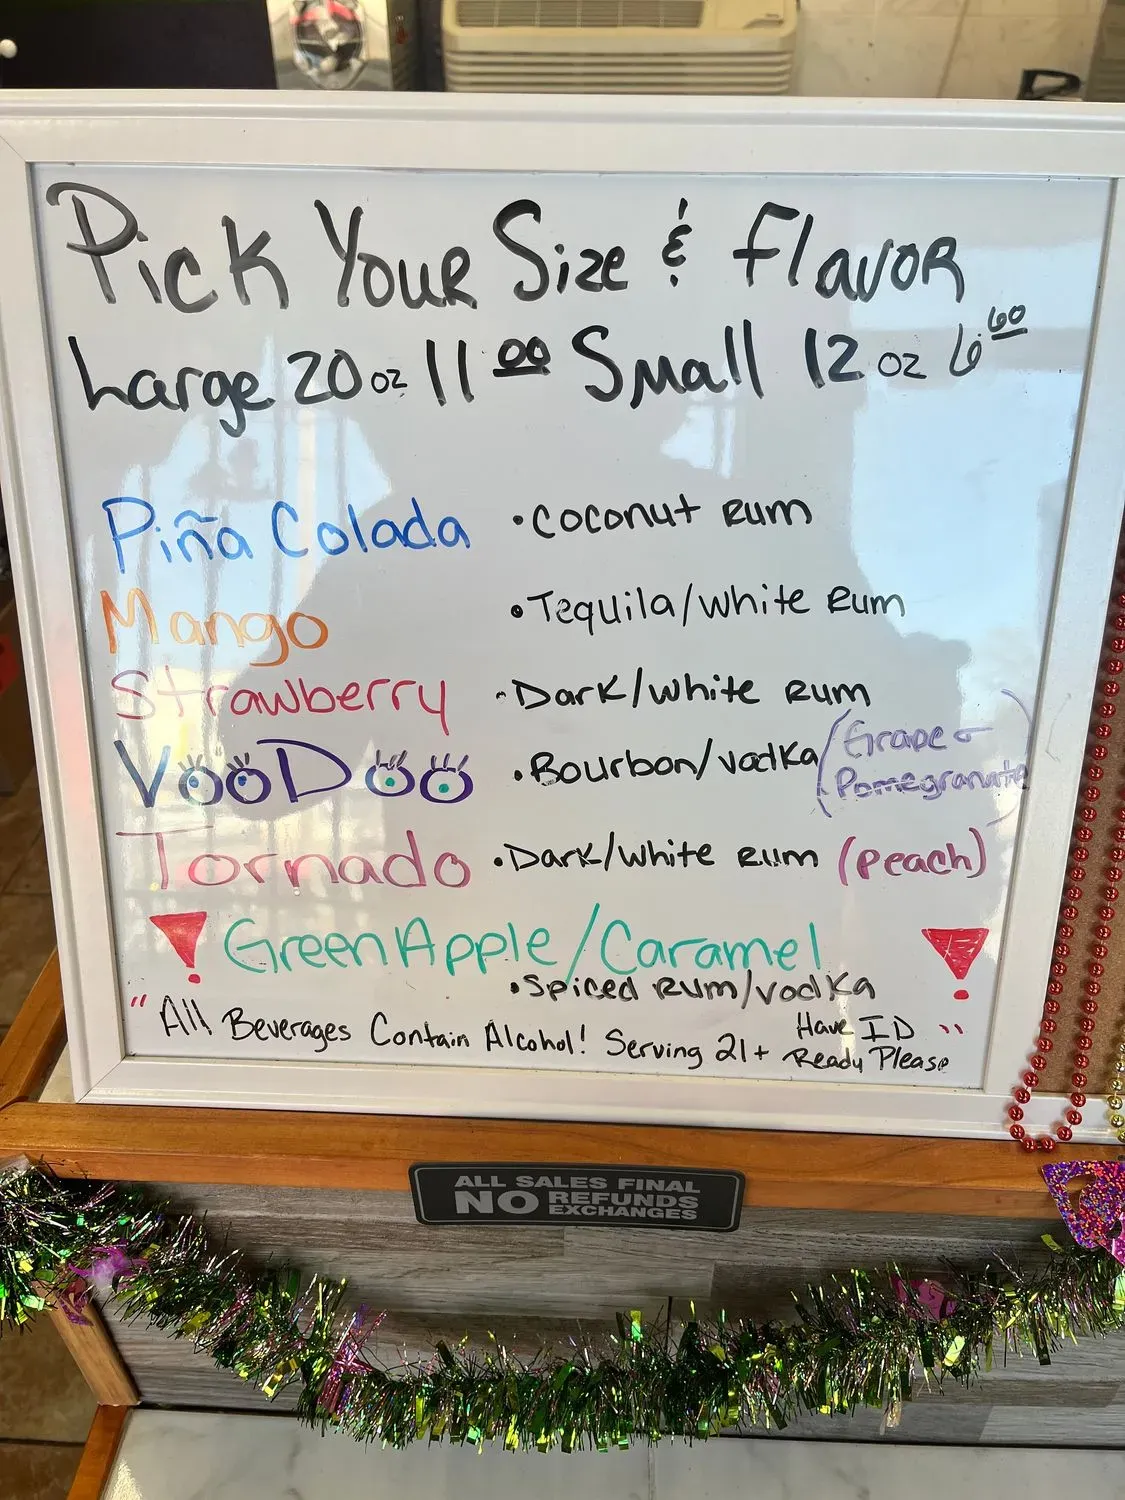 Pick Your Size & Flavor
Large 20 oz 11 00 Small 12 oz 6 60
Piña Colada • Coconut Rum
Mango • Tequila/White Rum
Strawberry • Dark/White Rum
VooDoo • Bourbon/Vodka (Grape
Pomegranate)
Tornado • Dark/White Rum (Peach)
! Green Apple/Caramel !
• Spiced Rum/Vodka
"All Beverages Contain Alcohol! Serving 21+ Have ID
Ready Please"
ALL SALES FINAL
NO REFUNDS
EXCHANGES